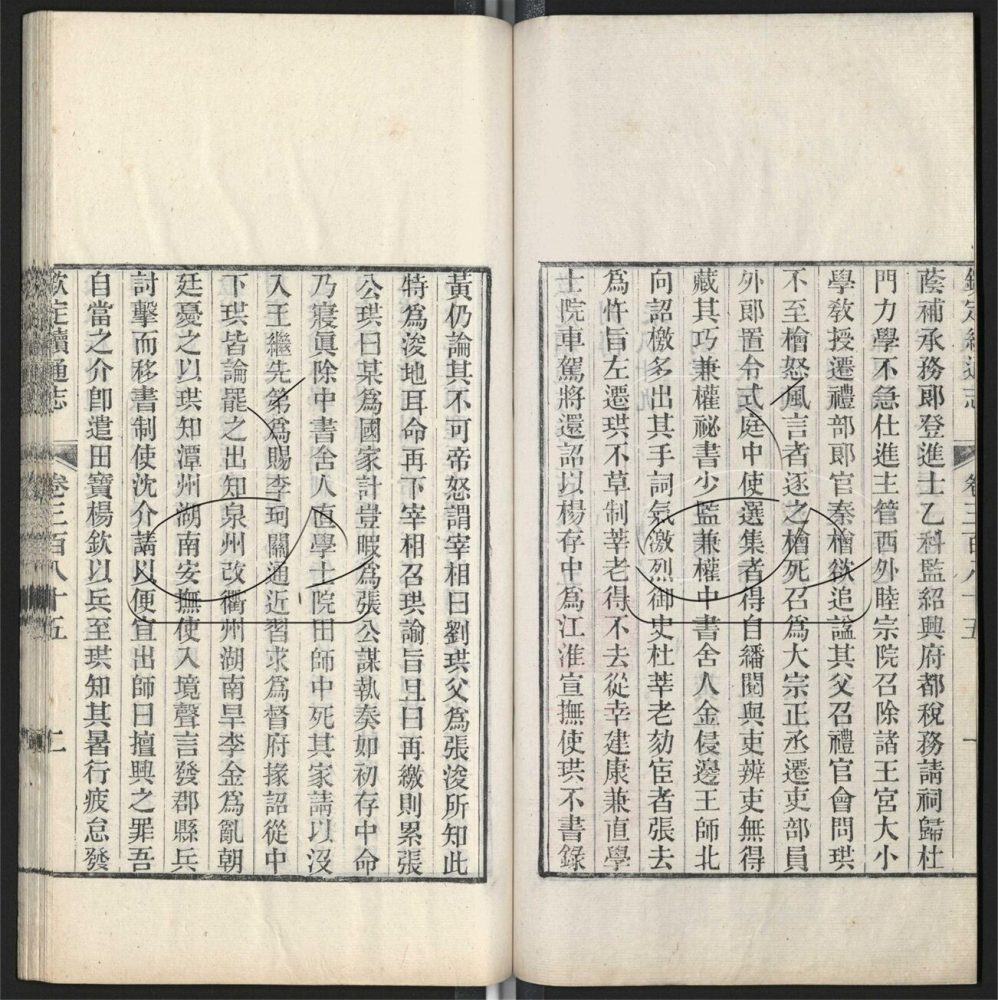 欽定續通志 卷三百八十五 一
蔭補承務郎登進士乙科監紹興府都稅務請祠歸杜
門力學不急仕進主管西外睦宗院召除諸王宮大小
學敎授遷禮部郎官秦檜欲追諡其父召禮官會問珙
不至檜怒風言者逐之檜死召爲大宗正丞遷吏部員
外郎置令式庭中使選集者得自繙閱與吏辨吏無得
藏其巧兼權祕書少監兼權中書舍人金侵邊王師北
向詔檄多出其手詞氣激烈御史杜莘老劾宦者張去
爲忤旨左遷珙不草制莘老得不去從幸建康兼直學
士院車駕將還詔以楊存中爲江淮宣撫使珙不書錄
黃仍論其不可帝怒謂宰相曰劉珙父爲張浚所知此
特爲浚地耳命再下宰相召珙諭旨且曰再繳則累張
公珙曰某爲國家計豈暇爲張公謀執奏如初存中命
乃寢眞除中書舍人直學士院田師中死其家請以沒
入王繼先第爲賜李珂關通近習求爲督府掾詔從中
下珙皆論罷之出知泉州改衢州湖南旱李金爲亂朝
廷憂之以珙知潭州湖南安撫使入境聲言發郡縣兵
討擊而移書制使沈介請以便宜出師曰擅興之罪吾
自當之介卽遣田寶楊欽以兵至珙知其暑行疲怠發
欽定續通志 卷三百八十五 二